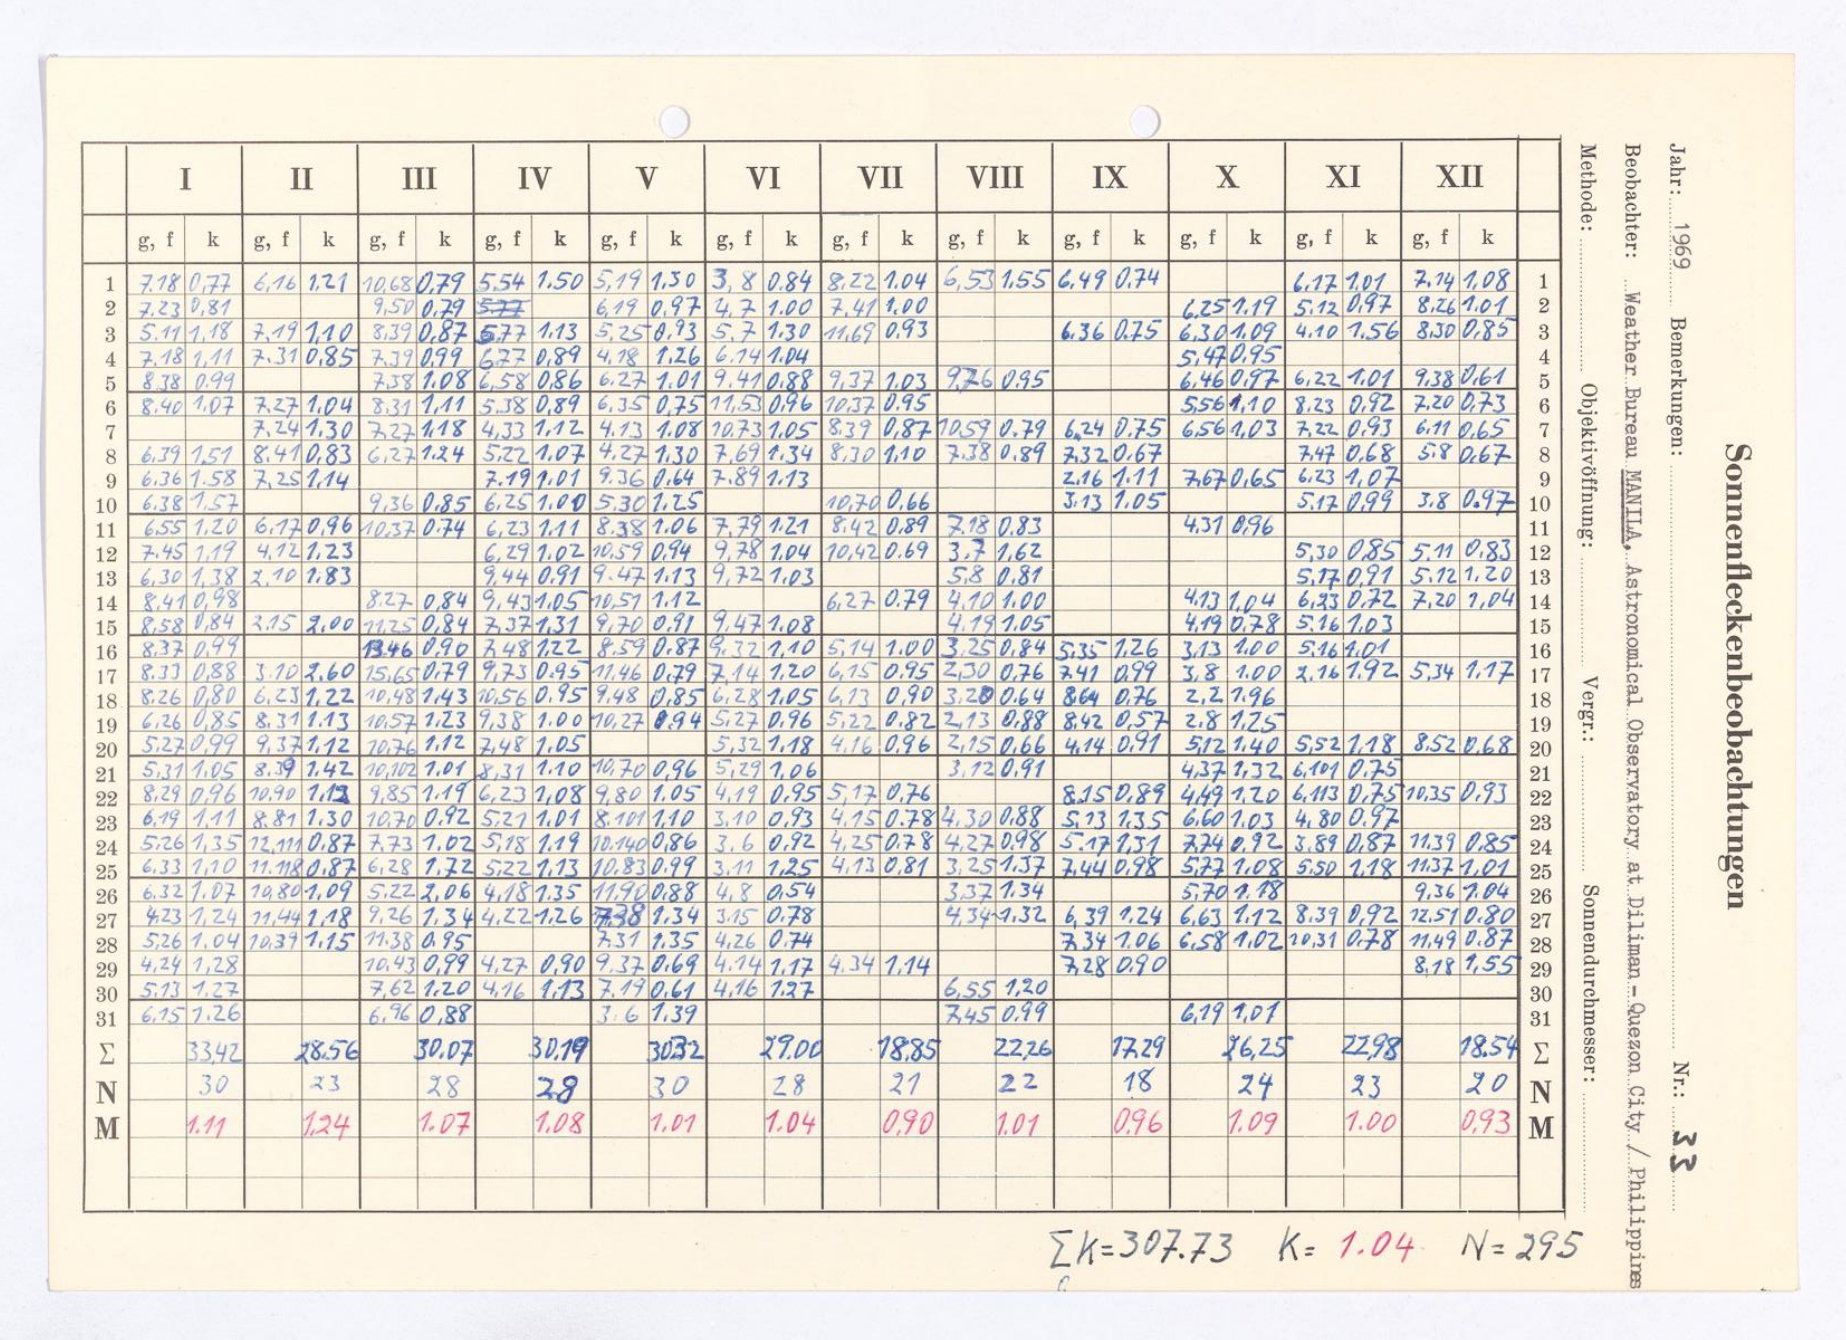 Sonnenfleckenbeobachtungen
Jahr: 1969 Bemerkungen: Nr.: 33
Beobachter: Weather Bureau MANILA, Astronomical Observatory at Diliman - Quezon City / Philippines
Methode: Objektivöffnung: Vergr.: Sonnendurchmesser:
I II III IV V VI VII VIII IX X XI XII
g, f k g, f k g, f k g, f k g, f k g, f k g, f k g, f k g, f k g, f k g, f k g, f k
1 7.18 0,77 6,16 1,21 10,68 0,79 5.54 1.50 5,19 1.30 3,8 0.84 8,22 1.04 6,53 1.55 6.49 0.74 6.17 1.01 7.14 1.08 1
2 7.23 0,81 9,50 0,79 5.77 6,19 0,97 4,7 1.00 7,41 1.00 6,25 1.19 5.12 0,97 8,26 1.01 2
3 5.11 1,18 7.19 1,10 8.39 0,87 6,77 1.13 5,25 0,93 5,7 1.30 11,69 0,93 6.36 0.75 6,30 1.09 4.10 1.56 8,30 0,85 3
4 7.18 1,11 7.31 0,85 7.39 0,99 6.77 0,89 4.18 1.26 6.14 1.04 5,47 0.95 4
5 8.38 0.99 7.38 1.08 6,58 0,86 6.27 1.01 9.41 0.88 9,37 1.03 9,26 0,95 6,46 0,97 6,22 1.01 9,38 0,61 5
6 8.40 1.07 7,27 1,04 8,31 1,11 5,38 0,89 6,35 0,75 11,53 0,96 10,37 0.95 5,56 1,10 8,23 0,92 7,20 0,73 6
7 7,24 1,30 7,27 1,18 4,33 1,12 4.13 1.08 10,73 1.05 8,39 0,87 10,59 0.79 6,24 0,75 6,56 1,03 7,22 0,93 6,11 0,65 7
8 6.39 1,51 8.41 0,83 6,27 1.24 5,22 1.07 4,27 1.30 7,69 1.34 8,30 1,10 7,38 0,89 7,32 0,67 7,47 0,68 5.8 0,67 8
9 6,36 1.58 7,25 1.14 7.19 1.01 9.36 0,64 7.89 1.13 2.16 1.11 7,67 0,65 6,23 1,07 9
10 6,38 1,57 9,36 0,85 6,25 1.00 5.30 1.25 10,70 0,66 3.13 1.05 5,17 0,99 3,8 0.97 10
11 6.55 1,20 6,17 0,96 10,37 0.74 6,23 1,11 8.38 1.06 7,79 1.21 8,42 0,89 7.18 0,83 4.31 0,96 11
12 7.45 1,19 4,12 1.23 6,29 1.02 10,59 0.94 9,78 1.04 10,42 0.69 3.7 1,62 5,30 0,85 5.11 0,83 12
13 6,30 1,38 2,10 1.83 9,44 0,91 9.47 1.13 9,72 1.03 5,8 0,81 5,17 0,91 5,12 1.20 13
14 8.41 0,98 8,27 0,84 9,43 1.05 10,51 1.12 6,27 0.79 4.10 1.00 4.13 1,04 6,23 0,72 7,20 1,04 14
15 8,58 0,84 2.15 2.00 11,25 0,84 7,37 1,31 9,70 0.91 9,47 1.08 4.19 1.05 4.19 0,78 5.16 1,03 15
16 8,37 0,99 13.46 0,90 7,48 1.22 8,59 0,87 9,32 1,10 5,14 1.00 3,25 0,84 5,35 1.26 3,13 1.00 5.16 1.01 16
17 8.33 0,88 3.10 2,60 15,65 0,79 9,73 0.95 11,46 0,79 7,14 1,20 6,15 0.95 2,30 0,76 7,41 0,99 3,8 1.00 2,16 1,92 5,34 1.17 17
18 8.26 0,80 6.23 1,22 10,48 1,43 10,56 0.95 9,48 0,85 6,28 1.05 6,13 0,90 3,20 0,64 8,64 0,76 2.2 1.96 18
19 6.26 0,85 8,31 1.13 10,57 1.23 9,38 1.00 10,27 0.94 5,27 0,96 5,22 0.82 2,13 0,88 8,42 0,57 2.8 1,25 19
20 5,27 0,99 9,37 1.12 10,76 1.12 7,48 1.05 5,32 1,18 4.16 0,96 2,15 0,66 4.14 0,91 5,12 1.40 5,52 1,18 8.52 0.68 20
21 5,31 1.05 8.39 1.42 10,102 1.01 8,31 1.10 10,70 0,96 5,29 1,06 3,12 0,91 4,37 1,32 6,101 0.75 21
22 8.29 0,96 10,90 1.12 9,85 1.19 6,23 1,08 9,80 1.05 4,19 0,95 5,17 0,76 8,15 0,89 4,49 1,20 6,113 0,75 10,35 0,93 22
23 6.19 1,11 8.81 1.30 10,70 0.92 5.21 1.01 8,101 1.10 3.10 0,93 4.15 0.78 4,30 0.88 5,13 1.35 6.60 1.03 4,80 0.97 23
24 5.26 1,35 12,111 0.87 7,73 1.02 5,18 1.19 10.140 0,86 3.6 0,92 4,25 0.78 4,27 0,98 5.17 1,31 7,74 0,92 3.89 0,87 11.39 0,85 24
25 6.33 1,10 11.118 0,87 6,28 1.72 5,22 1.13 10.83 0.99 3.11 1,25 4,13 0,81 3,25 1.37 7,44 0,98 5,77 1.08 5,50 1,18 11.37 1,01 25
26 6.32 1.07 10,80 1.09 5.22 2,06 4,18 1.35 11,90 0.88 4,8 0,54 3,37 1.34 5,70 1.18 9,36 1.04 26
27 4.23 1,24 11,44 1.18 9,26 1.34 4,22 1.26 7.38 1.34 3.15 0.78 4.34 1.32 6,39 1.24 6,63 1.12 8.39 0,92 12,51 0.80 27
28 5,26 1.04 10,39 1.15 11.38 0,95 7.31 1.35 4.26 0.74 7,34 1.06 6,58 1,02 10,31 0,78 11,49 0.87 28
29 4.24 1,28 10,43 0,99 4,27 0,90 9.37 0.69 4.14 1.17 4.34 1.14 7,28 0,90 8,18 1,55 29
30 5,13 1,27 7,62 1.20 4,16 1,13 7.19 0,61 4,16 1.27 6,55 1,20 30
31 6,15 1.26 6.96 0,88 3.6 1.39 7,45 0,99 6,19 1,01 31
Σ 33,42 28.56 30.07 30.19 30.32 29.00 18,85 22,26 17.29 26,25 22,98 18.54 Σ
N 30 23 28 28 30 28 21 22 18 24 23 20 N
M 1.11 1,24 1.07 1.08 1.01 1.04 0,90 1.01 0.96 1.09 1.00 0,93 M
ΣK=307.73 K= 1.04 N=295